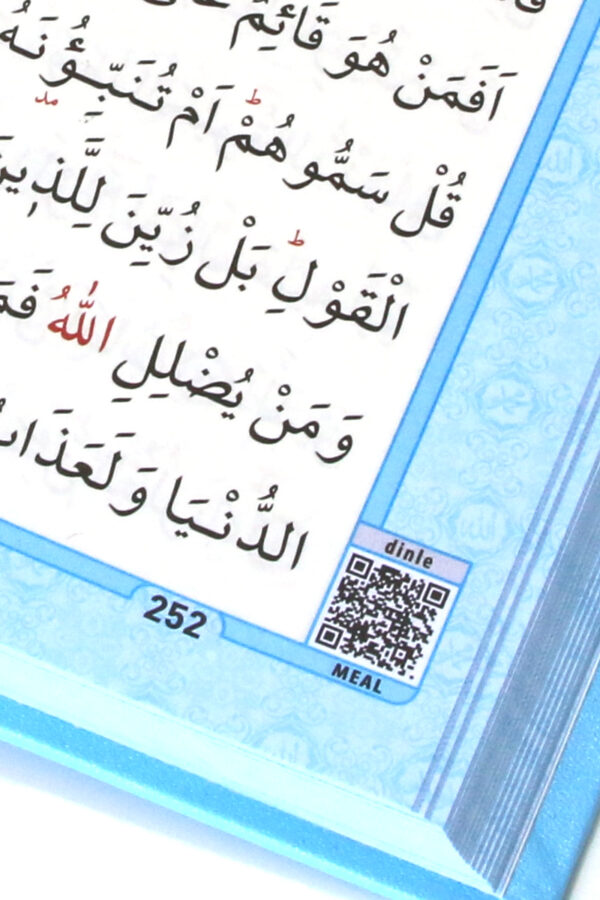 اَفَمَنْ هُوَ قَائِمٌ
قُلْ سَمُّوهُمْۜ اَمْ تُنَبِّؤُ۫نَهُ
الْقَوْلِۜ بَلْ زُيِّنَ لِلَّذ۪ينَ
وَمَنْ يُضْلِلِ اللّٰهُ
الدُّنْيَا وَلَعَذَابُ
dinle
MEAL
252